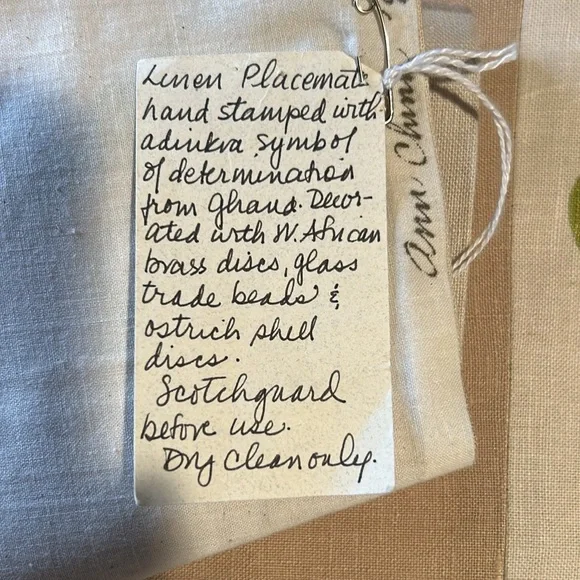 Linen Placemat
hand stamped with
adinkra symbol
of determination
from Ghana. Decor-
ated with W. African
brass discs, glass
trade beads &
ostrich shell
discs.
Scotchguard
before use.
Dry Clean only.
Ann